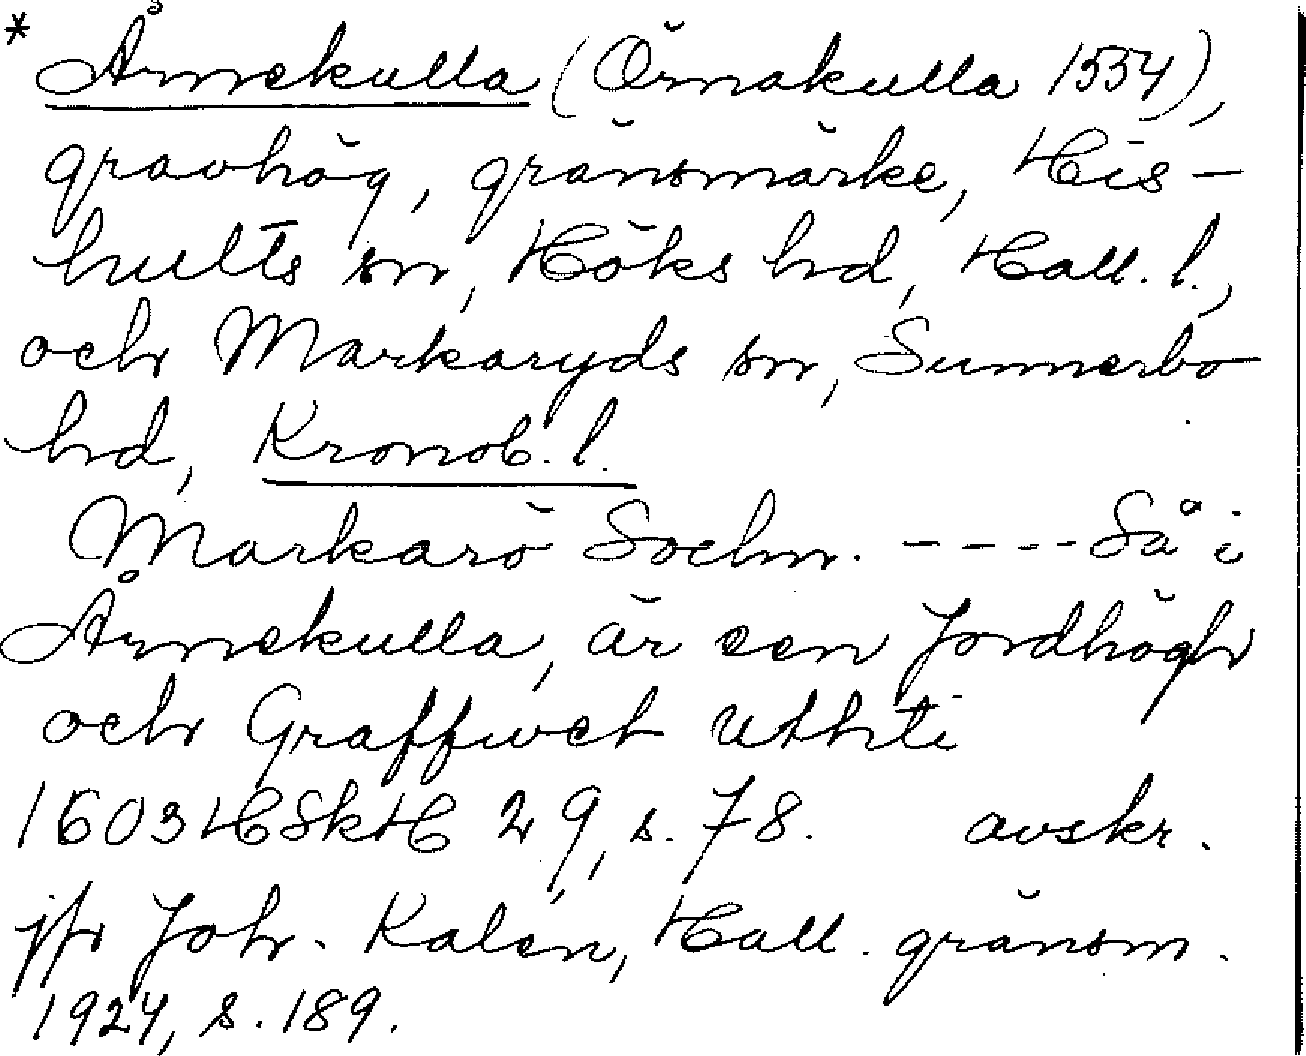 * Årnekulla (Örnakulla 1554),
gravhög, gränsmärke, His-
hults sn, Höks hd, Hall. l.,
och Markaryds sn, Sunnerbo
hd, Kronob. l.
Markarö Sochn. ---- Så i
Årnekulla, är een Jordhögh
och Graffwet utthti
1603 HSkH 29, s. 78. avskr.
jfr Joh. Kalén, Hall. gränsm.
1924, s. 189.